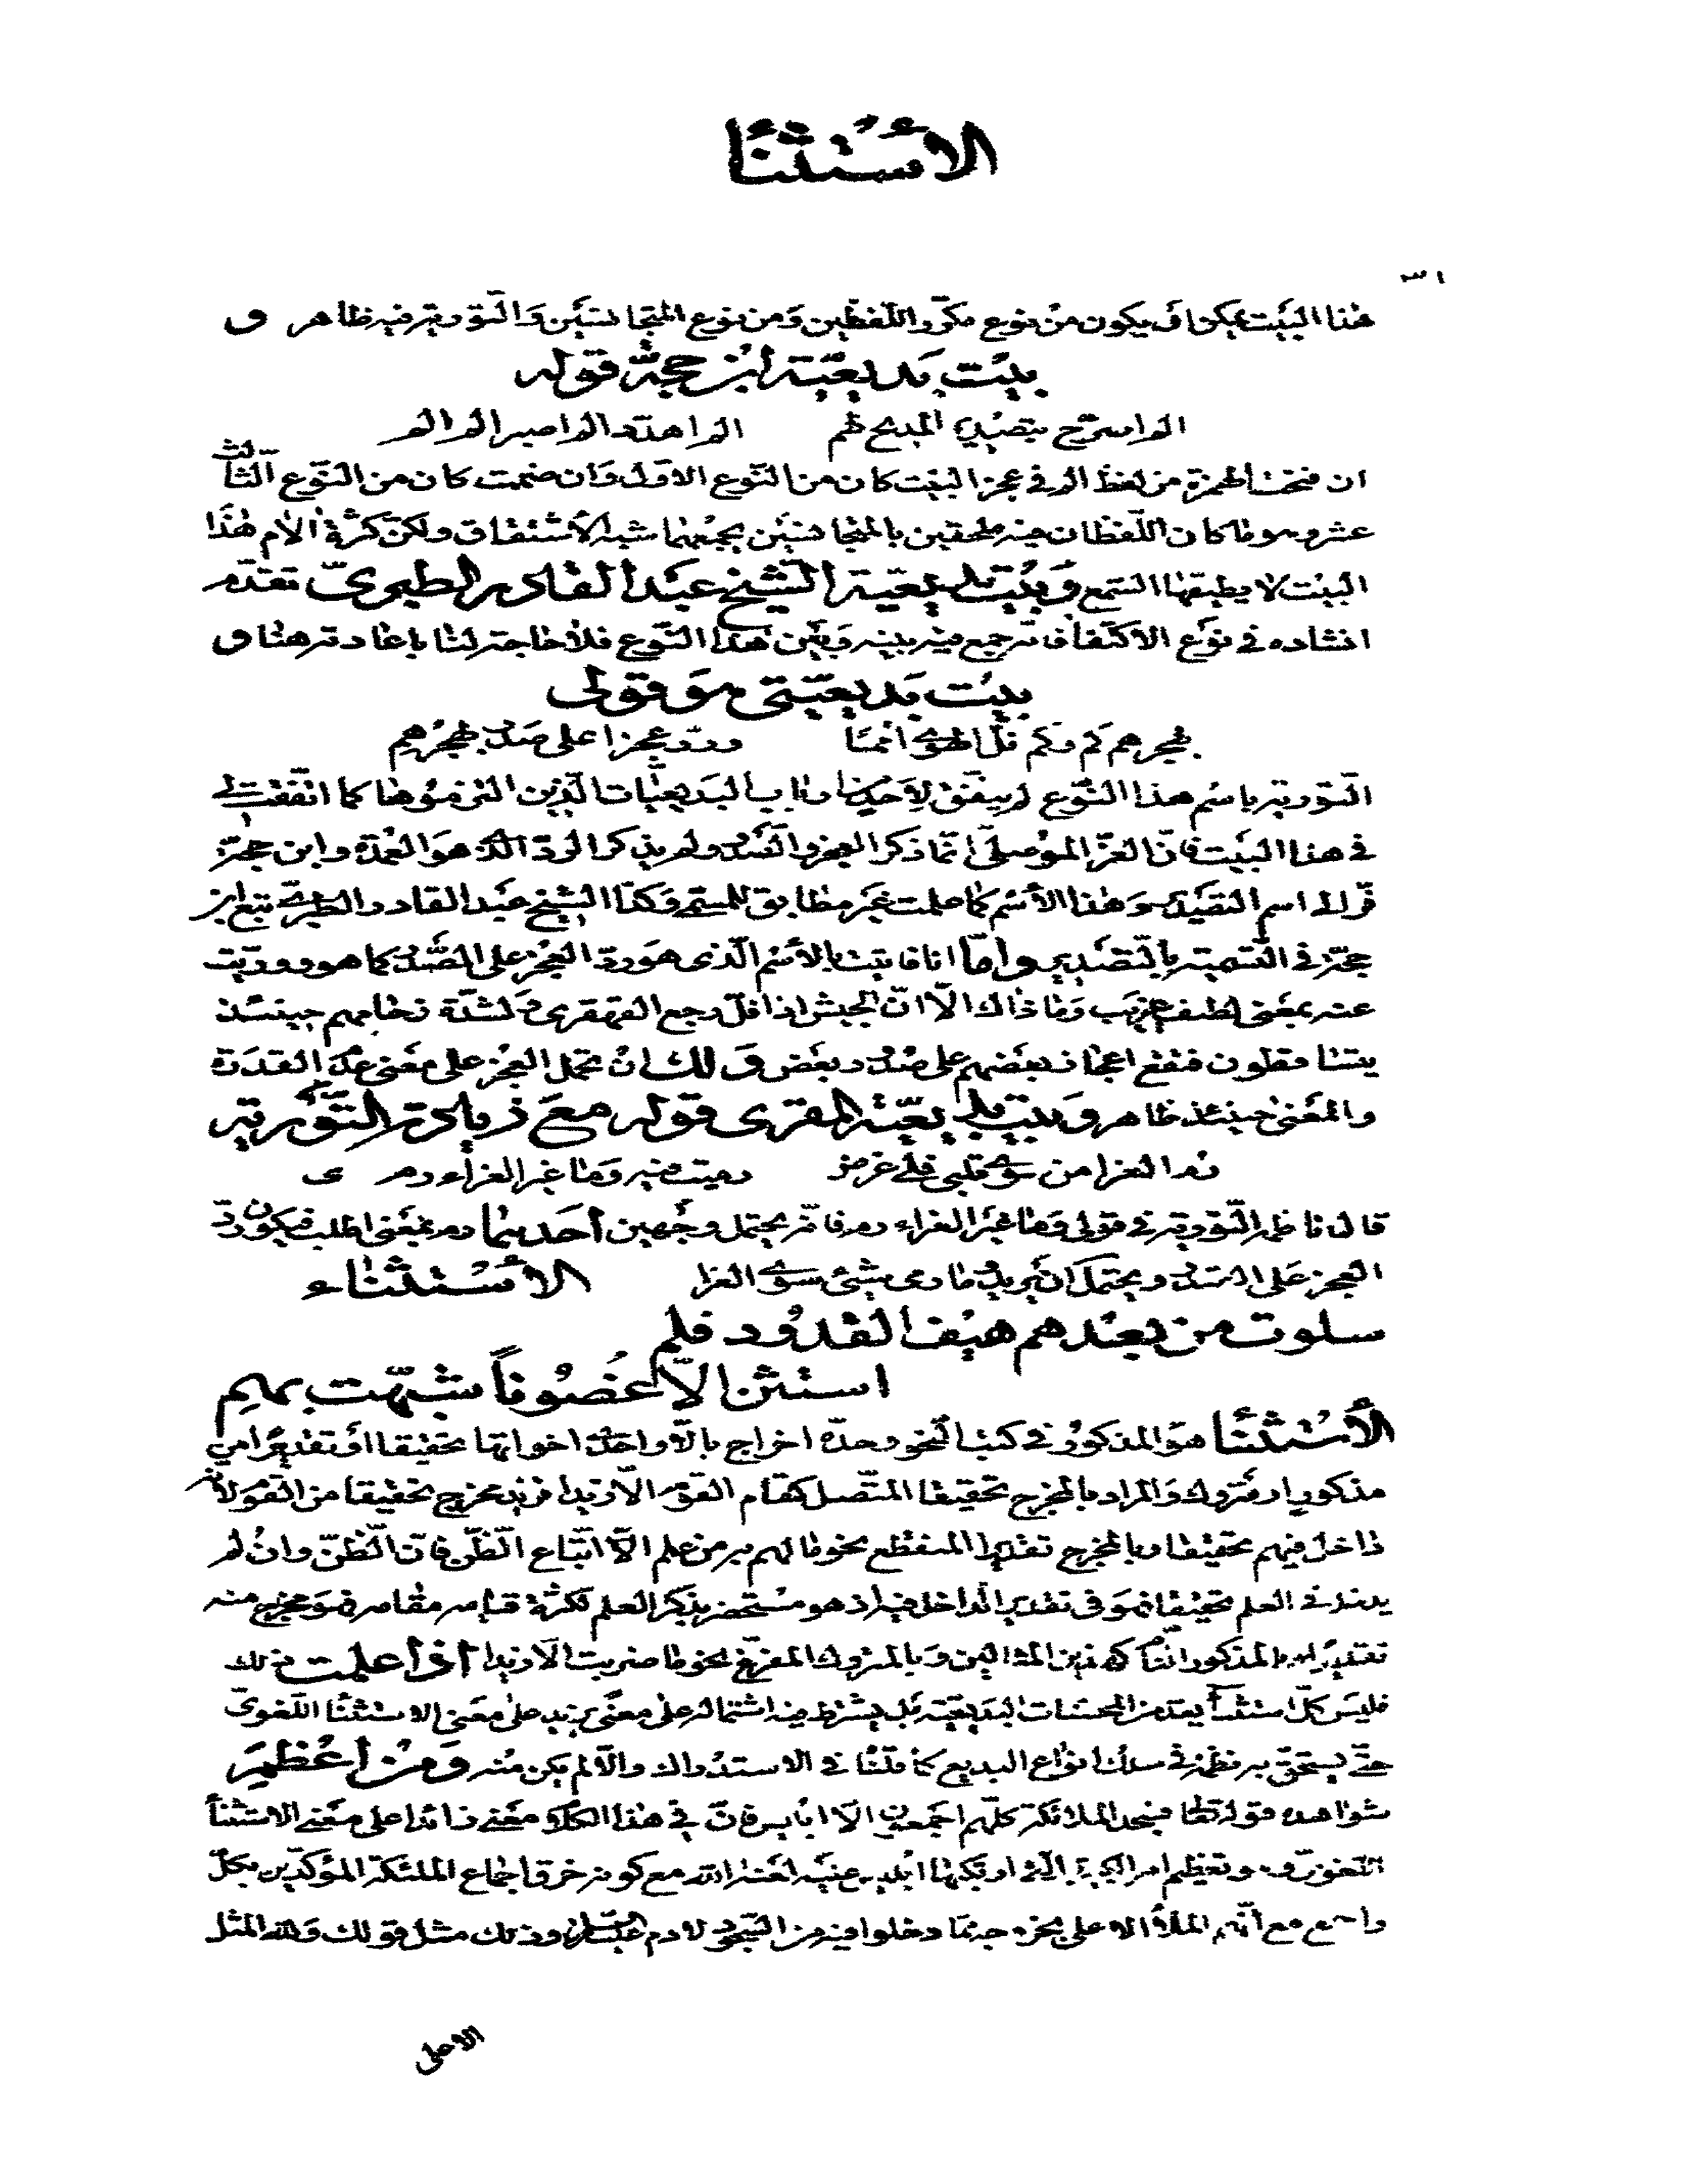 الاستثنا
هذا البيت يمكن ان يكون من نوع مكرّر اللفظين وَمن نوع المتجانسَين وَالتّورية فيه ظاهر و
بيت بديعيّة ابن حجّة قوله
الم اصرّح بتصدير المديح لهم
الم اهدّد الم اصبر الم الم
ان فتحت الهمزة من لفظ الم في عجز البيت كان من النّوع الاوّل وَان ضممت كان من النوّع الثّالث
عشر وهو ما كان اللّفظان فيه ملحقين بالمتجانسَين يجمعهما شبه الأشتقاق ولكنّ كثرة الام هٰذا
البيت لا يطيقها السّمع وَبيت بديعيّة الشّيخ عَبد القادر الطبريّ تقدّم
انشاده في نوَع الاكتفا فانّه جمع فيه بينه وَبَين هٰذا النّوع فلا حاجة لنا باعادته هنا و
بيت بَديعيّتي هوَ قولي
بهجرهم كم وكم فلّ الهوى امما
وردّ عجزا على صدر بهجرهم
التّورية باسم هذا النّوع لم يتفق لاحد من ارباب البديعيات الّذين التزموها كما اتّفقت لي
في هذا البيت فانّ العزّ الموصلى انّما ذكر العجز والصّدر ولم يذكر الردّ الّذي هوَ العمدة وابن حجّة
قرّ الى اسم التصدير وهٰذا الأسم كما علمت غير مطابق للمسمّى وَكذا الشيخ عَبد القادر الطبري تبع ابن
حجّة في التّسمية بالتّصدير وامّا انا فاتيت بالأسم الّذى هوَ ردّ العجز على الصّدر كما هو وورّيت
عنه بمعنى لطيف غريب وَما ذاك الّا انّ الجيش اذا فلّ رجع القهقرى وَلشدّة زحامهم حينئذ
يتساقطون فتقع اعجاز بعضهم على صدور بعض وَلك ان تحمل العجز على معَنى عدَم القدرَة
والمعَنى حينئذ ظاهر وَبيت بديعيّة المقرى قوله معَ زيادة التّورية
رم العزا من سوى قلبي فلى غرض
رميت فيه وَما غير العزاء رم ى
قال ناظمه التّورية في قولى وَما غير العزاء رم فانّه يحتمل وجَهين أحَدهما رم بمعَنى اطلب فيكون ردّ
العجز عَلى الصّدر ويحتمل ان يريد وما رمى بشئ سوى العزا الأستثناء
سلوت من بعدهم هيف القدود فلم
استثن الّا غصُوناً شبّهت بهمِ
الأستثنا هوَ المذكور في كتب النّحو وحدّه اخراج بالّا او احدى اخواتها تحقيقا او تقديرًا من
مذكور او متروك وَالمراد بالمخرج تحقيقا المتّصل كقام القوم الّا زيدا فزيد مخرج تحقيقا من القوم لانّه
داخل فيهم تحقيقا وبالمخرج تقديرا المنقطع نحو ما لهم به من علم الّا اتّباع الظّن فانّ الظّنّ وان لم
يدخل في العلم تحقيقا فهوَ في تقدير الدّاخل فيه اذ هو مستحضر بذكر العلم لكثرة قيامه مقامه فهوَ مخرج منه
تقديرًا وبالمذكور التّامّ كهذين المثالين وَبالمتروك المفرّغ نحو ما ضربت الّا زيدا اذا علمت ذلك
فليَس كلّ استثنآ يعدّ من المحسّنات البَديعيّة بَل يشترط فيه اشتماله على معنًى يزيد على معَنى الاستثنا اللّغوىّ
حتّى يستحقّ به نظمه في سلك انواع البديع كما قلنا في الاستدراك والّا لم يكن منه وَمن اعظمِ
شواهده قوله تعالى فسجد الملائكة كلّهم اجمعون الّا ابليس فانّ في هٰذا الكلام معَنى زائدا على معَنى الاستثنا
اللّغوىّ وهو تعظيم امر الكبيرة الّتي ارتكبها ابليس عليه لعنة الله مع كونه خرق اجماع الملئكة المؤكّدين بكلّ
واجمع مع انّهم الملأ الاعلى بخروجه ممّا دخلوا فيه من السّجود لادم عليه السّلام وذلك مثل قولك وَلله المثل
الاعلى